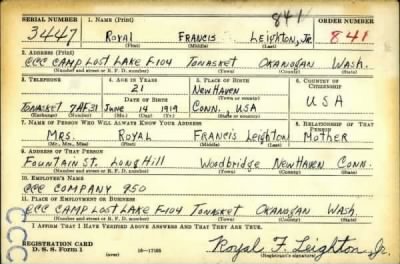 841
SERIAL NUMBER 1. NAME (Print) ORDER NUMBER
3447 Royal Francis Leighton, Jr. 841
(First) (Middle) (Last)
2. ADDRESS (Print)
CCC CAMP LOST LAKE F-104 TONASKET OKANOGAN WASH.
(Number and street or R. F. D. number) (Town) (County) (State)
3. TELEPHONE 4. AGE IN YEARS 5. PLACE OF BIRTH 6. COUNTRY OF CITIZENSHIP
21 NEW HAVEN
DATE OF BIRTH (Town or county)
TONASKET 7AF31 JUNE 14 1919 CONN., USA USA
(Exchange) (Number) (Mo.) (Day) (Yr.) (State or country)
7. NAME OF PERSON WHO WILL ALWAYS KNOW YOUR ADDRESS 8. RELATIONSHIP OF THAT PERSON
MRS. ROYAL FRANCIS Leighton Mother
(Mr., Mrs., Miss) (First) (Middle) (Last)
9. ADDRESS OF THAT PERSON
FOUNTAIN ST. LONG HILL Woodbridge NEW HAVEN CONN.
(Number and street or R. F. D. number) (Town) (County) (State)
10. EMPLOYER'S NAME
CCC COMPANY 950
11. PLACE OF EMPLOYMENT OR BUSINESS
CCC CAMP LOST LAKE F-104 TONASKET OKANOGAN WASH.
(Number and street or R. F. D. number) (Town) (County) (State)
I AFFIRM THAT I HAVE VERIFIED ABOVE ANSWERS AND THAT THEY ARE TRUE.
CCC
REGISTRATION CARD
D. S. S. FORM 1 (over) 16-17105 Royal F. Leighton Jr.
(Registrant's signature)